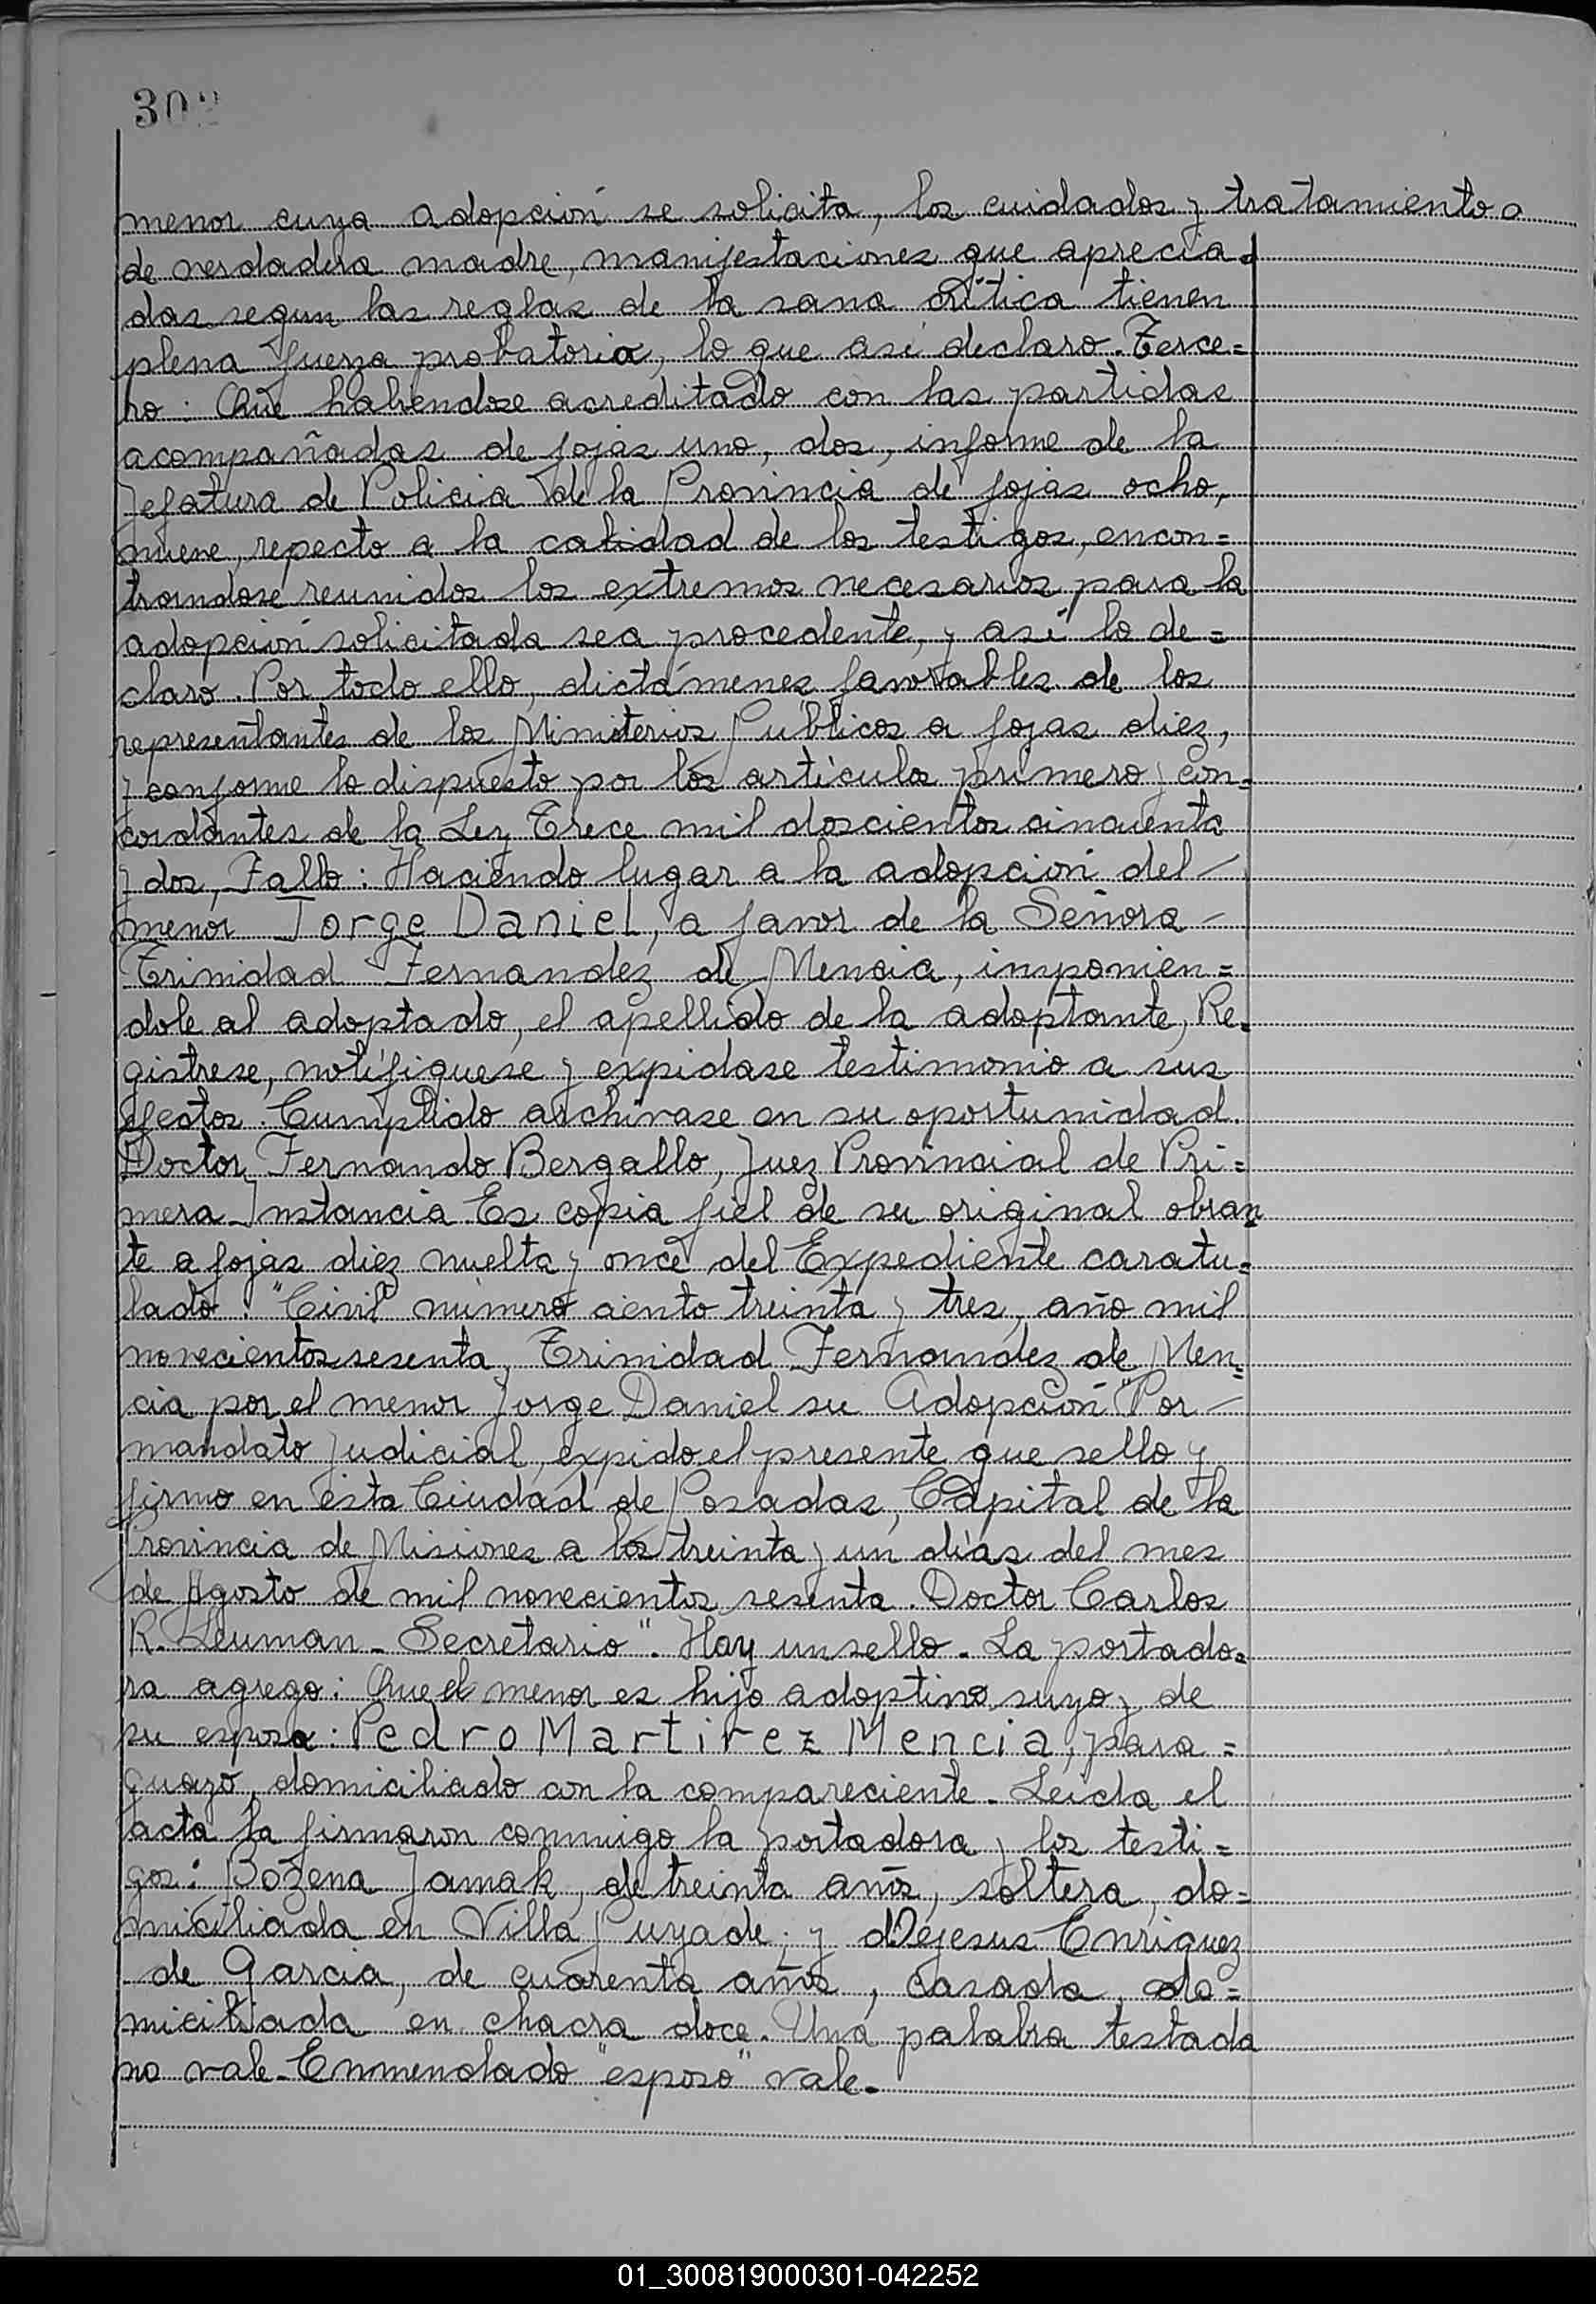 302
menor cuya adopción se solicita, los cuidados y tratamiento o
de verdadera madre, manifestaciones que aprecia=
das segun las reglas de la sana crítica tienen
plena fuerza probatoria, lo que asi declaro. Terce=
ro: Que habiendose acreditado con las partidas
acompañadas de fojas uno, dos, informe de la
Jefatura de Policia de la Provincia de fojas ocho,
nueve, repecto a la calidad de los testigos, encon=
trandose reunidos los extremos necesarios para la
adopción solicitada sea procedente, y así lo de=
claro. Por todo ello, dictámenes favorables de los
representantes de los Ministerios Públicos a fojas diez,
y conforme lo dispuesto por los artículos primero y con=
cordantes de la Ley Trece mil doscientos cincuenta
y dos, Fallo: Haciendo lugar a la adopción del -
menor Jorge Daniel, a favor de la Señora -
Trinidad Fernandez de Mencia, imponien=
dole al adoptado, el apellido de la adoptante, Re=
gistrese, notífiquese y expidase testimonio a sus
efectos. Cumplido archivase en su oportunidad.
Doctor Fernando Bergallo, Juez Provincial de Pri=
mera Instancia. Es copia fiel de su original obran
te a fojas diez vuelta y once del Expediente caratu=
lado: "Civil número ciento treinta y tres, año mil
novecientos sesenta, Trinidad Fernandez de Men=
cia por el menor Jorge Daniel su Adopción" Por -
mandato judicial, expido el presente que sello y
firmo en ésta Ciudad de Posadas, Capital de la
Provincia de Misiones a los treinta y un días del mes
de Agosto de mil novecientos sesenta. Doctor Carlos
R. Leuman - Secretario". Hay un sello. La portado=
ra agrego: Que el menor es hijo adoptivo suyo y de
su esposo: Pedro Martirez Mencia, para=
guayo, domiciliado con la compareciente. Leida el
acta la firmaron conmigo la portadora y los testi=
gos: Bozena Jamak, de treinta años, soltera, do=
miciliada en Villa Puyade; y Dejesus Enriquez
de Garcia, de cuarenta años, casada, do=
miciliada en chacra doce. Una palabra testada
no vale. Enmendado "esposo" vale.
01_300819000301-042252